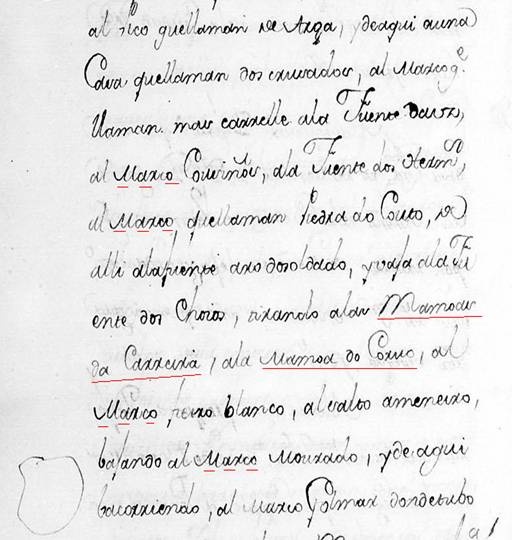 al pico quellaman de Arga, ydeaqui auna
Cava quellaman dos cruzados, al Marco q.e
llaman. mas carrelle ala Fuente
al Marco Couriños, ala Fuente dos
al Marco quellaman Piedra do Couto, de
alli alapuente axo dosoldado, yvaja ala Fu
ente dos Choios, tirando alas Mamoas
da Carreira, ala Mamoa do Corno, al
Marco peixo blanco, alsalto ameneiro,
bajando al Marco Mourado, ydeaqui
bacorriendo, al Marco Golmar dondetubo